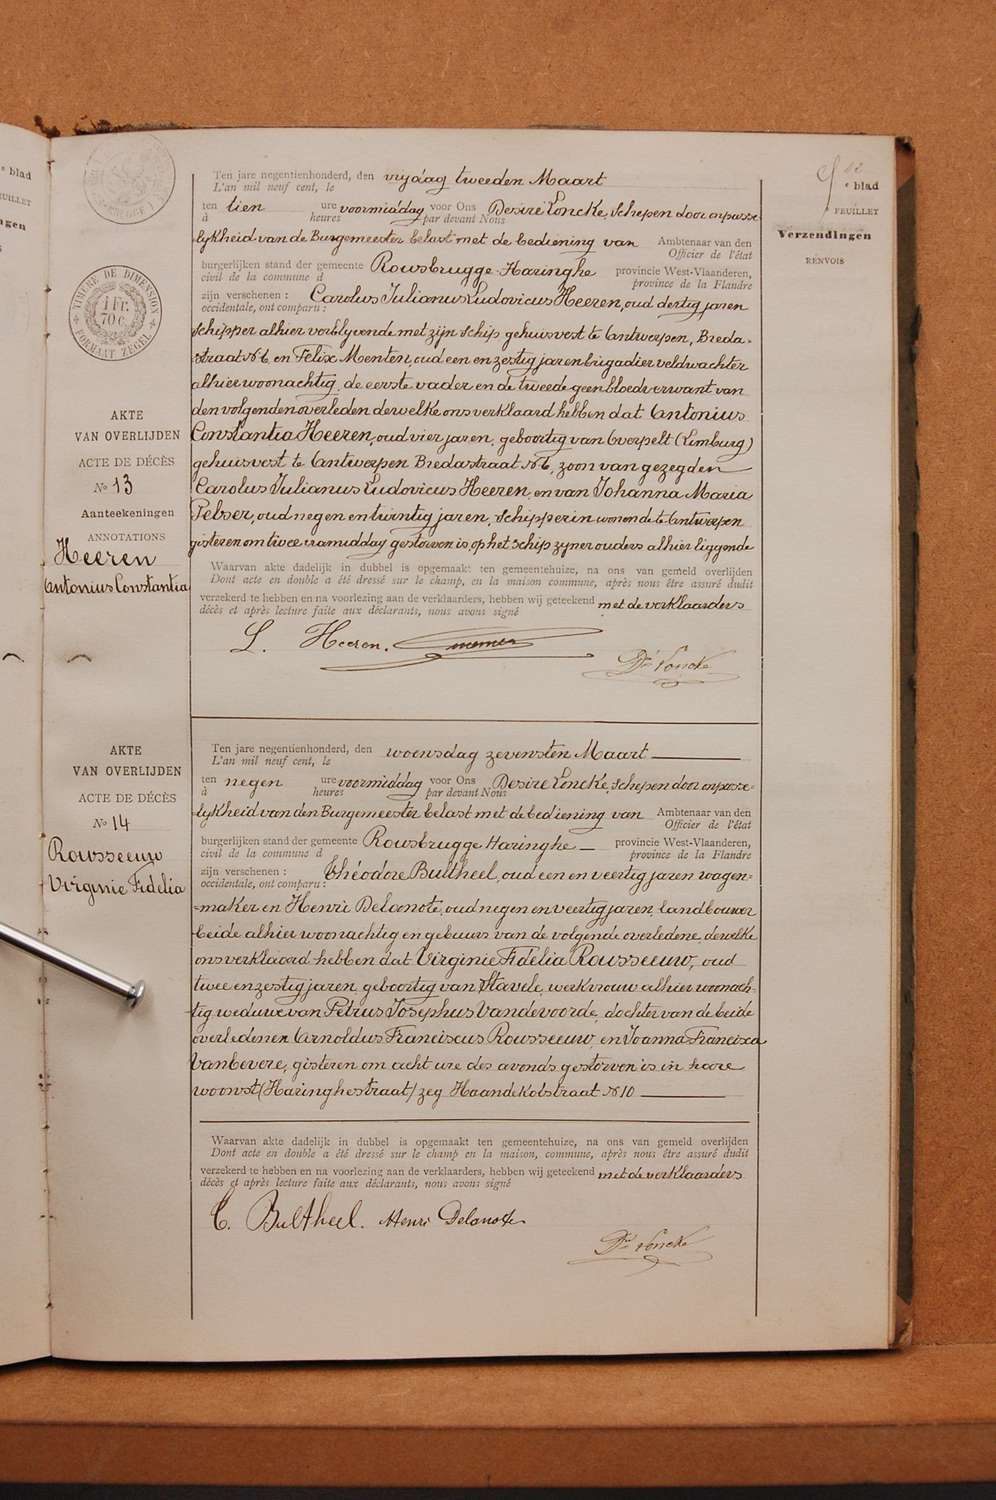 blad
FEUILLET
Verzendingen
RENVOIS
TIMBRE DE DIMENSION
1 FR.
70 C.
FORMAAT ZEGEL
AKTE
VAN OVERLIJDEN
ACTE DE DÉCÈS
No 13
Aanteekeningen
ANNOTATIONS
Heeren
Antonius Constantia
Ten jare negentienhonderd, den vrydag tweeden Maart
L'an mil neuf cent, le
ten tien ure voormiddag voor Ons Desiré Loncke, Schepen door onposse-
à heures par devant Nous
lykheid van de Burgemeester belast met de bediening van Ambtenaar van den
Officier de l'état
burgerlijken stand der gemeente Rousbrugge-Haringhe provincie West-Vlaanderen,
civil de la commune d province de la Flandre
zijn verschenen : Carolus Julianus Ludovicus Heeren, oud dertig jaren
occidentale, ont comparu :
schipper alhier verblyvende met zijn schip gehuisvest te Antwerpen, Breda-
straat No 6 en Felix Menten, oud een en zestig jaren brigadier veldwachter
alhier woonachtig, de eerste vader en de tweede geen bloedverwant van
den volgenden overleden dewelke ons verklaard hebben dat Antonius
Constantia Heeren, oud vier jaren, geboortig van Overpelt (Limburg)
gehuisvest te Antwerpen Bredastraat No 6, zoon van gezegden
Carolus Julianus Ludovicus Heeren, en van Johanna Maria
Pelser, oud negen en twintig jaren, schipperin wonende te Antwerpen
gisteren om twee ure namiddag gestorven is, op het schip zyner ouders alhier liggende
Waarvan akte dadelijk in dubbel is opgemaakt ten gemeentehuize, na ons van gemeld overlijden
Dont acte en double a été dressé sur le champ, en la maison commune, après nous être assuré dudit
verzekerd te hebben en na voorlezing aan de verklaarders, hebben wij geteekend met de verklaarders
décès et après lecture faite aux déclarants, nous avons signé
L. Heeren.
Dré Loncke
AKTE
VAN OVERLIJDEN
ACTE DE DÉCÈS
No 14
Rousseeuw
Virginie Fidelia
Ten jare negentienhonderd, den woensdag zevensten Maart
L'an mil neuf cent, le
ten negen ure voormiddag voor Ons Desiré Loncke, Schepen door onposse-
à heures par devant Nous
lykheid van den Burgemeester belast met de bediening van Ambtenaar van den
Officier de l'état
burgerlijken stand der gemeente Rousbrugge Haringhe provincie West-Vlaanderen,
civil de la commune d province de la Flandre
zijn verschenen : Théodore Bultheel, oud een en veertig jaren wagen-
occidentale, ont comparu :
maker en Henri Delanote, oud negen en veertig jaren, landbouwer
beide alhier woonachtig en gebuurs van de volgende overledene, dewelke
ons verklaard hebben dat Virginie Fidelia Rousseeuw, oud
twee en zestig jaren, geboortig van Stavele, werkvrouw alhier woonach-
tig weduwe van Petrus Josephus Vandevoorde, dochter van de beide
overledenen Arnoldus Franciscus Rousseeuw, en Joanna Francisca
Vanbevere, gisteren om acht ure des avonds gestorven is in hare
woonst (Haringhestraat) zeg Haandekotstraat No 10
Waarvan akte dadelijk in dubbel is opgemaakt ten gemeentehuize, na ons van gemeld overlijden
Dont acte en double a été dressé sur le champ en la maison, commune, après nous être assuré dudit
verzekerd te hebben en na voorlezing aan de verklaarders, hebben wij geteekend met de verklaarders
décès et après lecture faite aux déclarants, nous avons signé
T. Bultheel. Henri Delanote
Dré Loncke